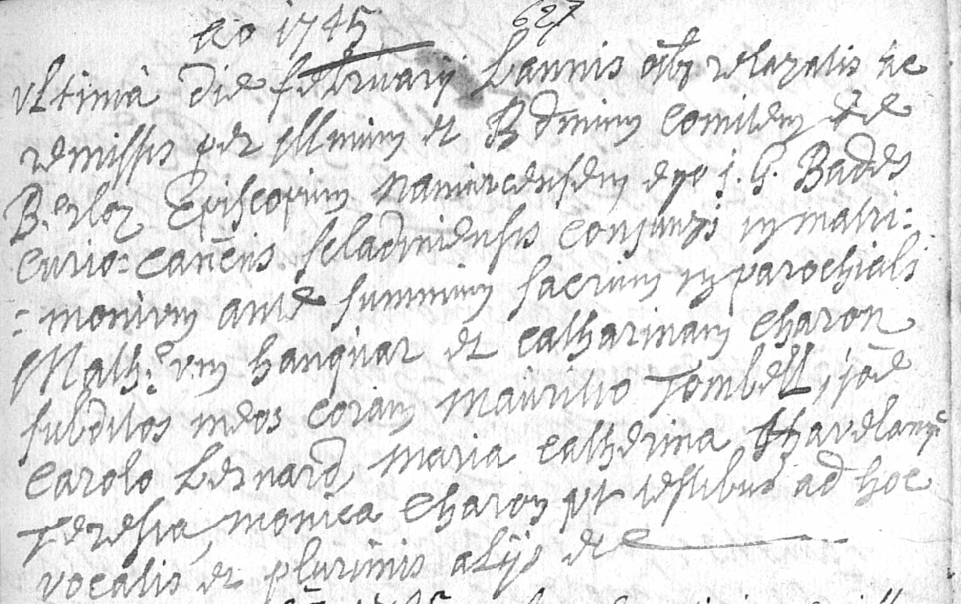 Ao 1745 627
ultimâ die februarij bannis oîbz relaxatis ac
remissis per illmum et R dminum comitem de
B.erloz Episcopum namurcensem ego j. G. Badot
curio=canēns scladiniensis conjunxi in matri:
=monium ante summum sacrum in parochiali
Math:eum hanquar et catharinam charon
subditos meos coram mauritio Tombell, joe
carolo Bernard, maria catherina havelang
Teresia, monica charon ut testibus ad hoc
vocatis et plurimis alijs etc